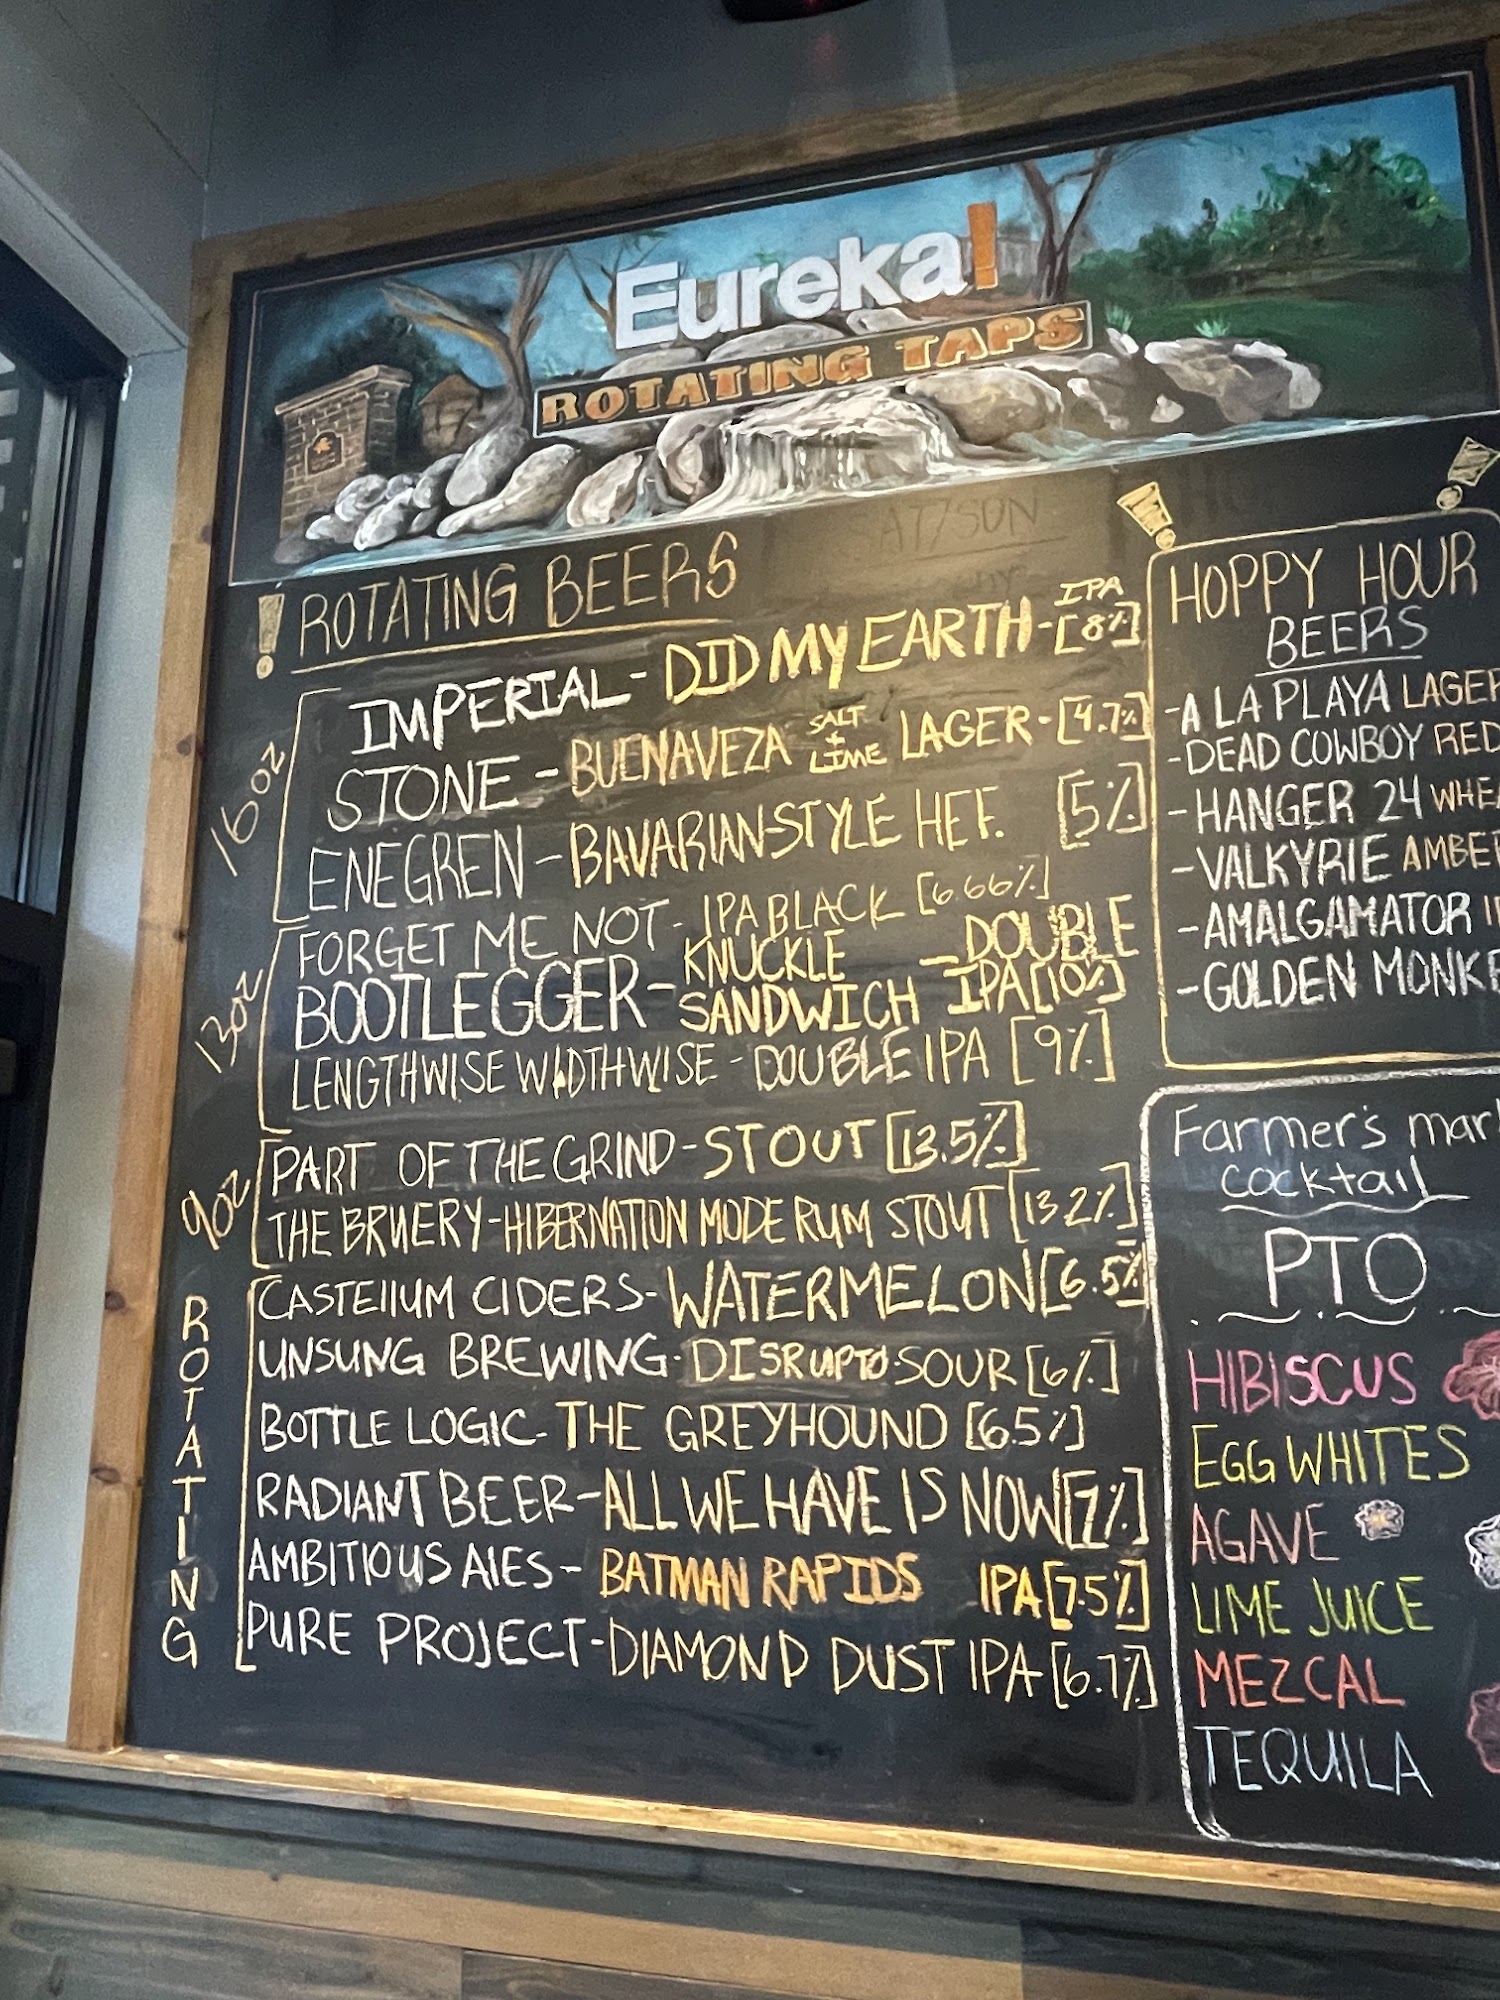 Eureka!
ROTATING TAPS
SAT/SUN
! ROTATING BEERS
16oz
IMPERIAL - DID MY EARTH - IPA [8%]
STONE - BUENAVEZA SALT + LIME LAGER - [4.7%]
ENEGREN - BAVARIAN-STYLE HEF. [5%]
13oz
FORGET ME NOT - IPA BLACK [6.66%]
BOOTLEGGER - KNUCKLE SANDWICH - DOUBLE IPA [10%]
LENGTHWISE WIDTHWISE - DOUBLE IPA [9%]
9oz
PART OF THE GRIND - STOUT [13.5%]
THE BRUERY - HIBERNATION MODE RUM STOUT [13.2%]
ROTATING
CASTEllUM CIDERS - WATERMELON [6.5%]
UNSUNG BREWING - DISRUPTO - SOUR [6%]
BOTTLE LOGIC - THE GREYHOUND [6.5%]
RADIANT BEER - ALL WE HAVE IS NOW [7%]
AMBITIOUS AlES - BATMAN RAPIDS IPA [7.5%]
PURE PROJECT - DIAMOND DUST IPA [6.7%]
! HOPPY HOUR !
BEERS
- A LA PLAYA LAGER
- DEAD COWBOY RED
- HANGER 24 WHEA
- VALKYRIE AMBE
- AMALGAMATOR I
- GOLDEN MONKE
Farmer's mar
cocktail
PTO
HIBISCUS
EGG WHITES
AGAVE
LIME JUICE
MEZCAL
TEQUILA